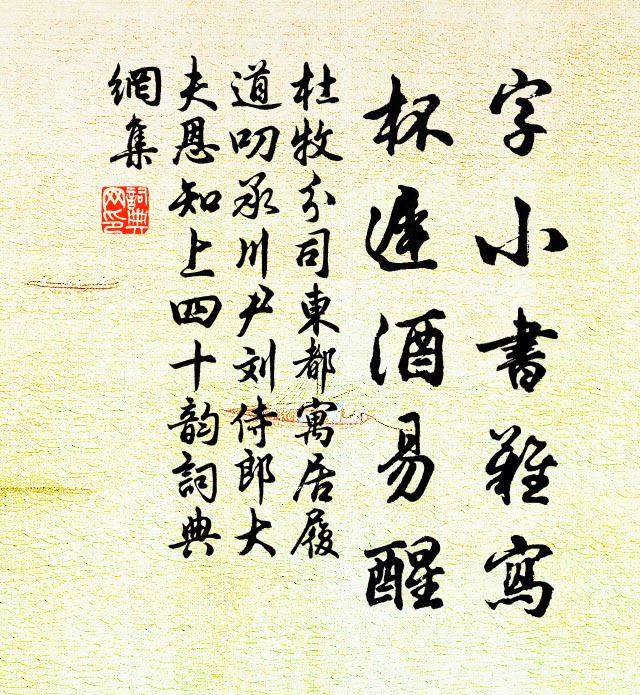 字小書難寫
杯遲酒易醒
杜牧分司東都寓居履
道叨承川尹刘侍郎大
夫恩知上四十韵詞典
網集
詞典
网印